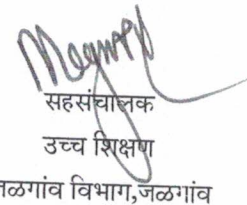 सहसंचालक
उच्च शिक्षण
जळगांव विभाग,जळगांव